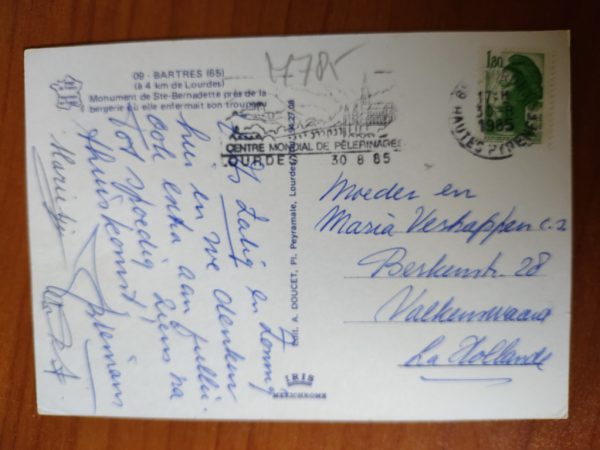 09 - BARTRES (65)
(à 4 km de Lourdes)
Monument de Ste-Bernadette près de la
bergerie où elle enfermait son troupeau
1778
CENTRE MONDIAL DE PÈLERINAGES
LOURDES 30 8 85
1,80
17-
1985
HAUTES PYRENEES
zalig en zonnig
hier en we denken
ook extra aan jullie.
Tot spoedig ziens na
thuiskomst!
Edit. A. DOUCET, Pl. Peyramale, Lourdes
IRIS
MEXICHROME
Moeder en
Maria Verkappen c.z
Berkenstr 28
Valkenswaard
La Hollande